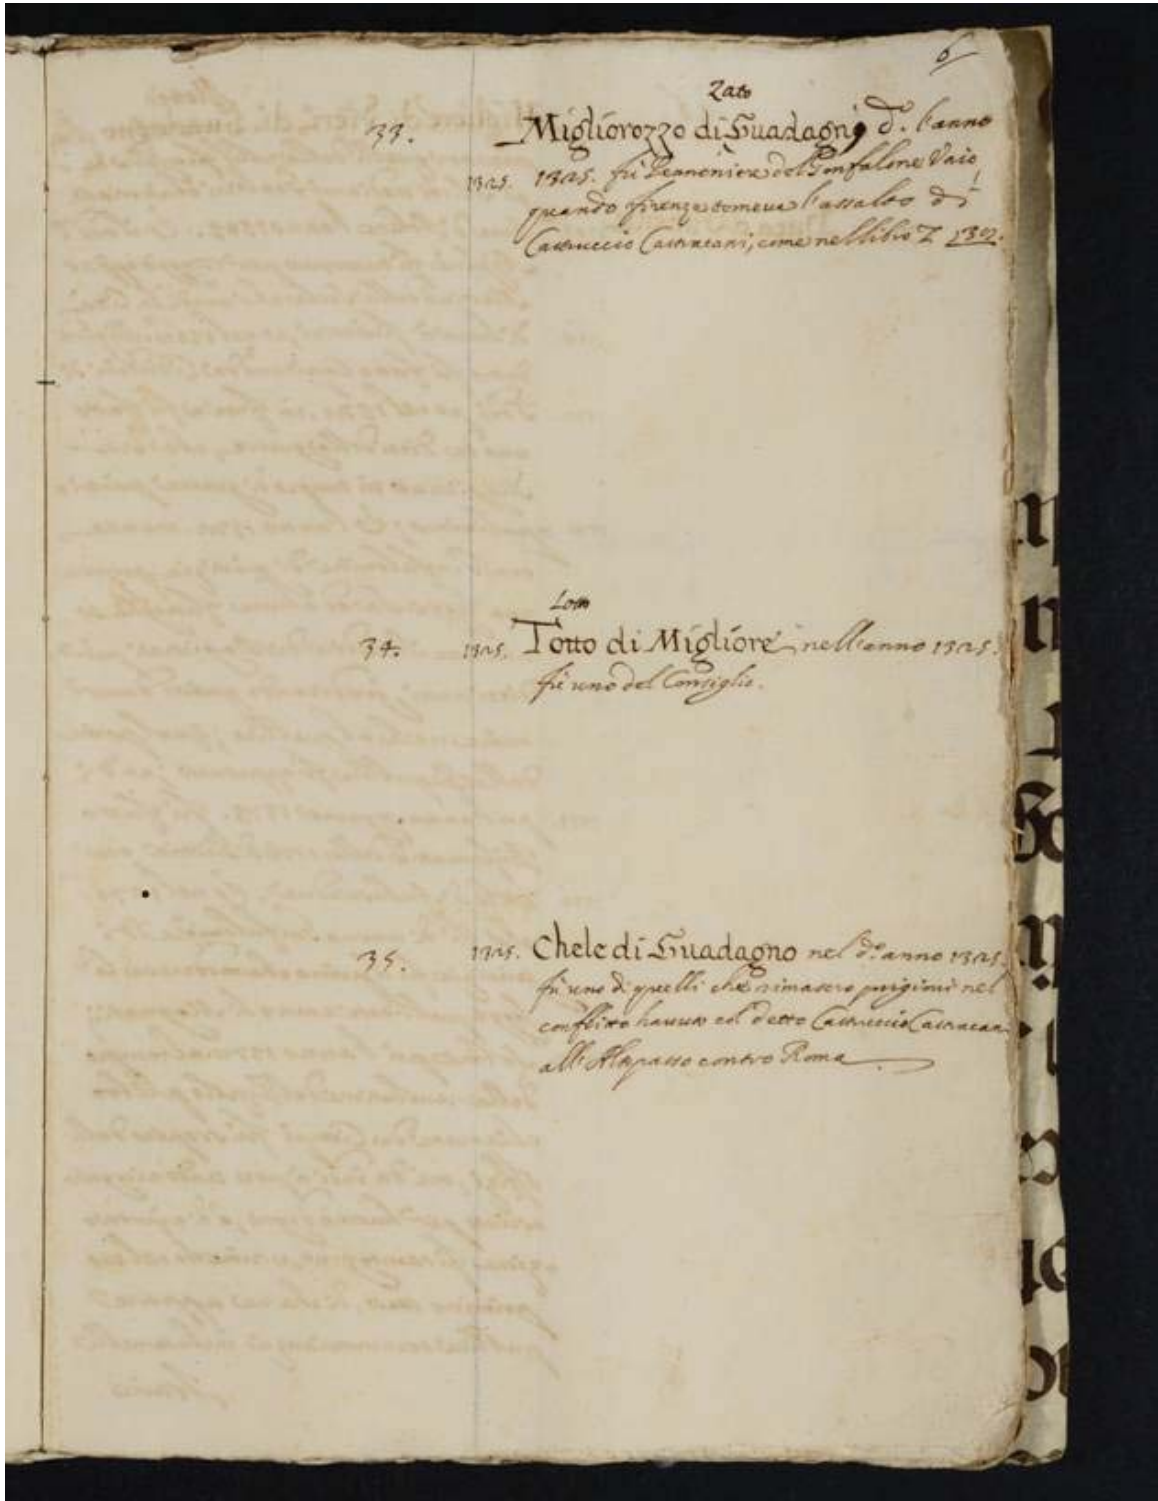 6
Zato
33. Migliorozzo di Guadagni d.º l'anno
1325. 1325. fù del Gonfalone Vaio,
quando firenze temeva l'assalto di
Castruccio Castracani, come nel libro Z 1302.
Lotto
34. 1325. Totto di Migliore nell'anno 1325.
fù uno del Consiglio.
35. 1325. Chele di Guadagno nel d.º anno 1325.
fù uno di quelli che rimasero prigioni nel
conflitto hauuto col detto Castruccio Castracani
all'Altopasso contro Roma